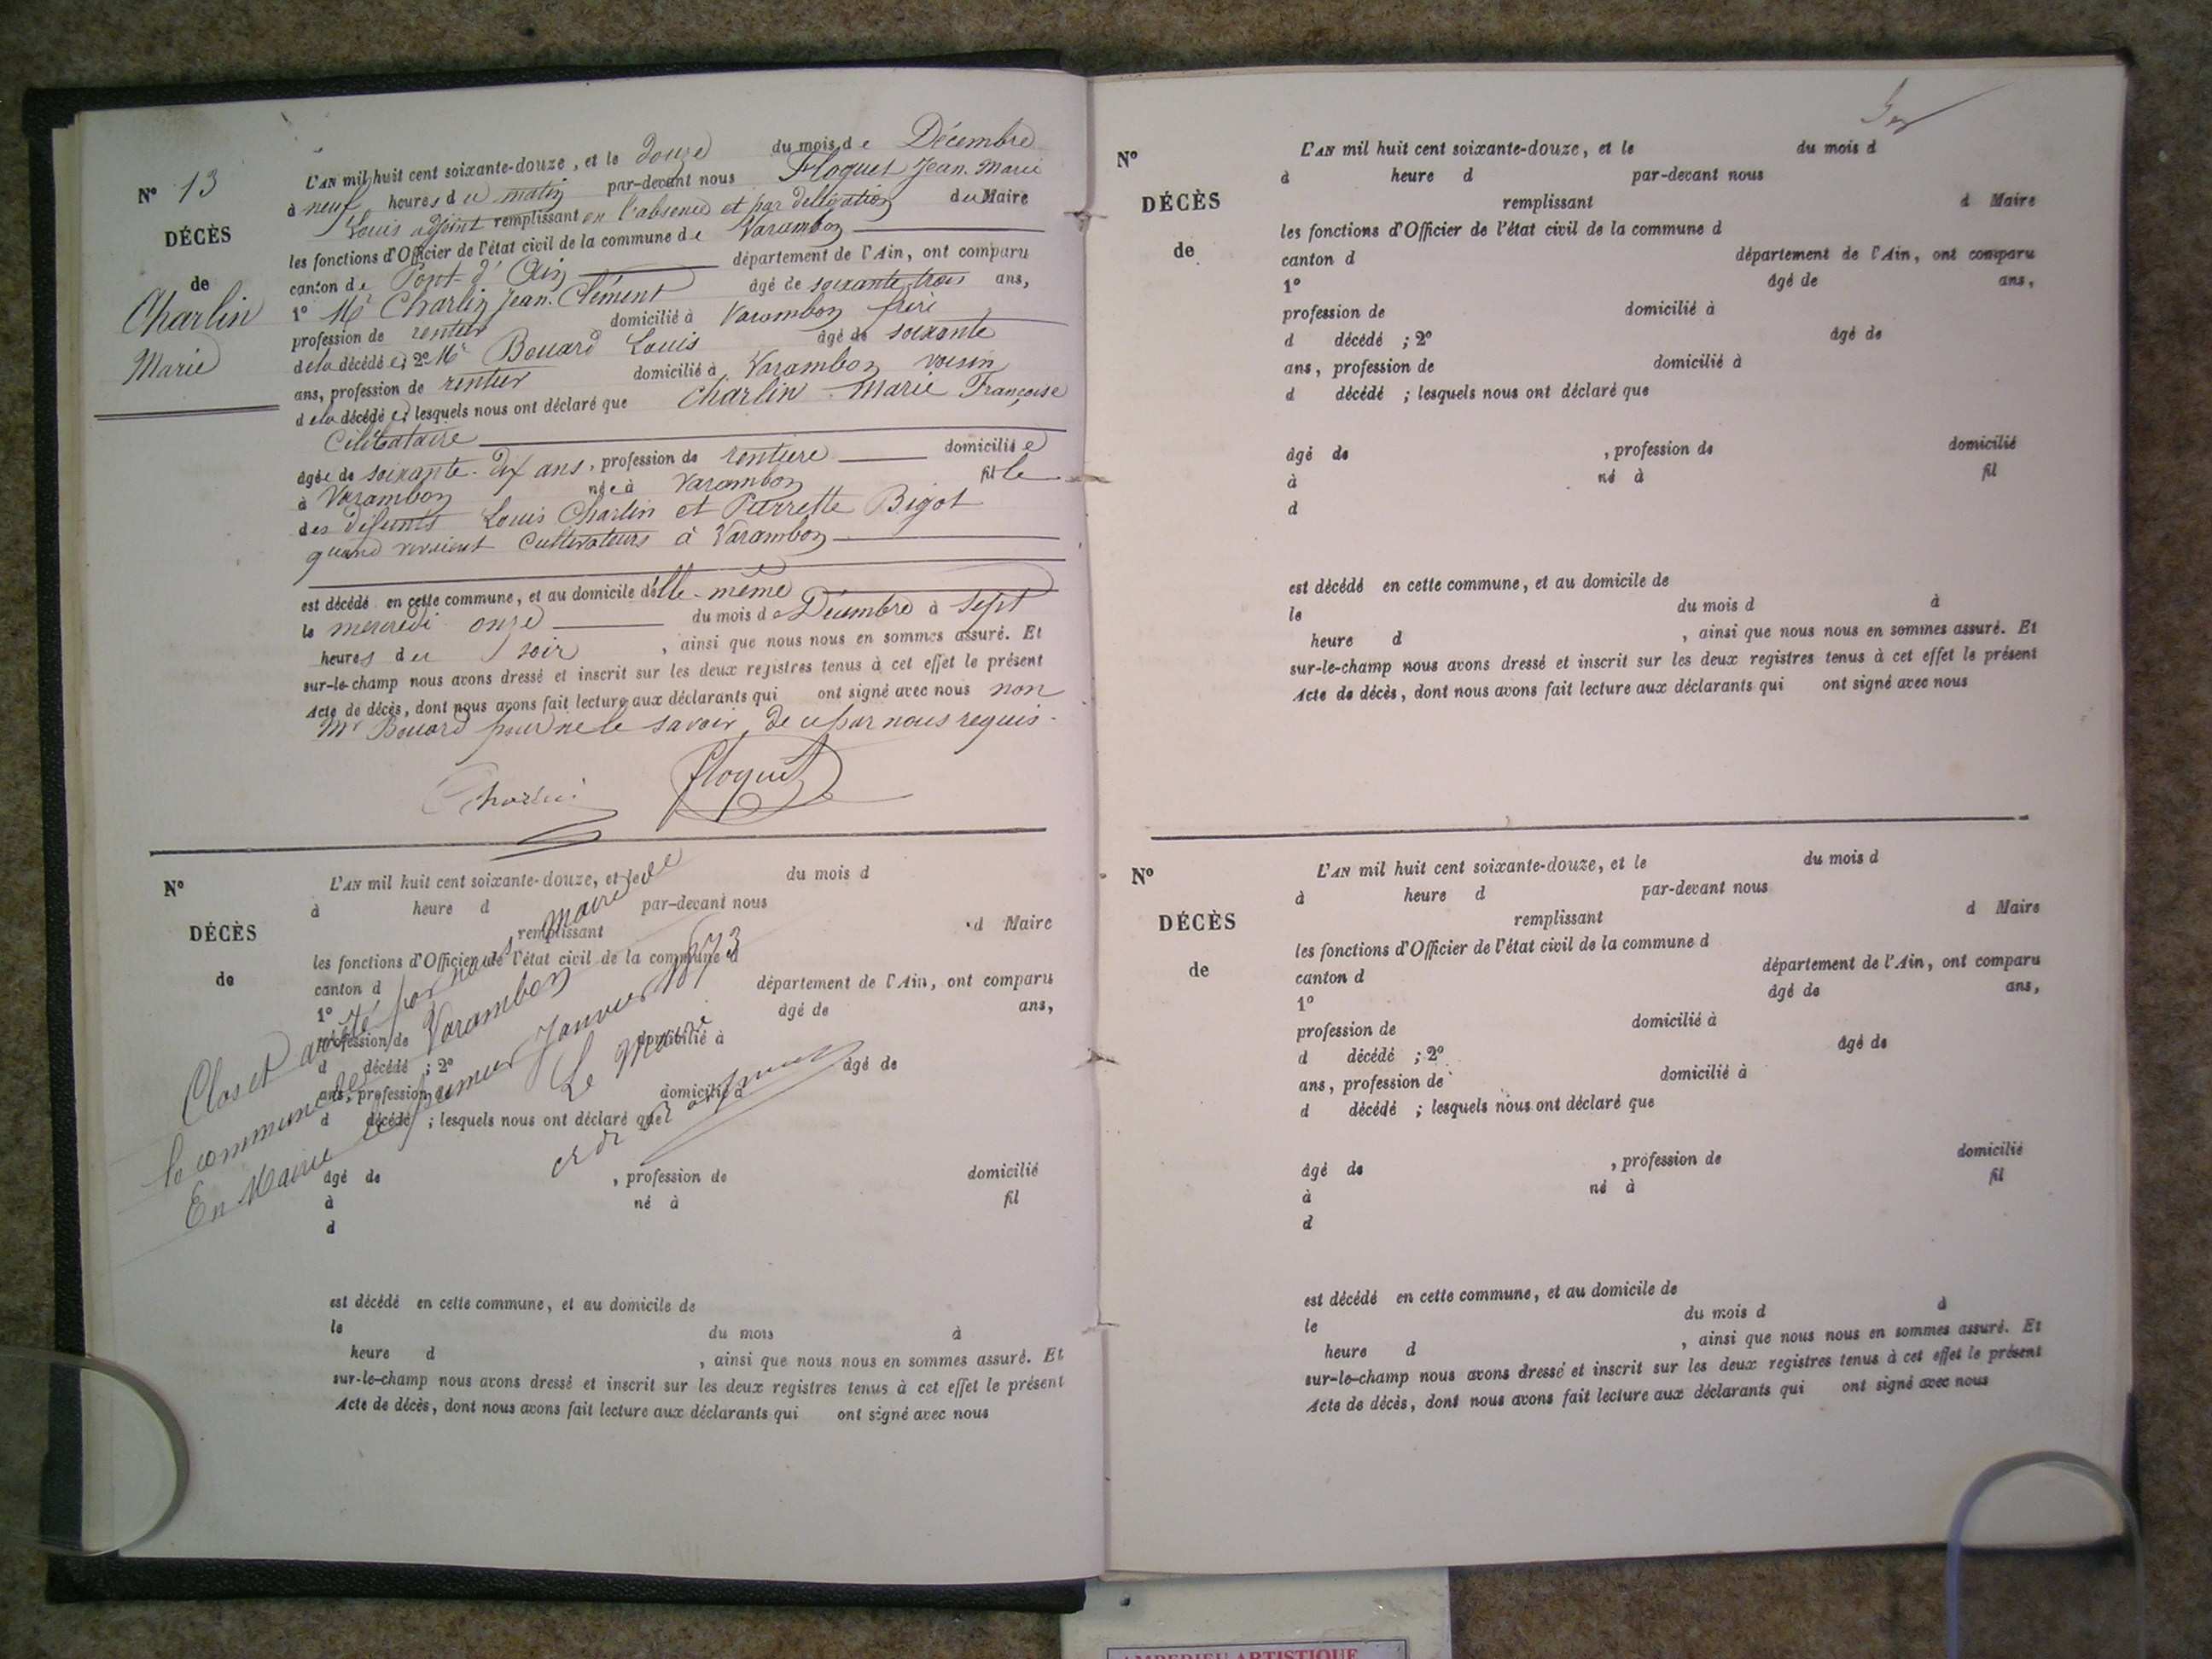 N° 13
DÉCÈS
de
Charlin
Marie
L'AN mil huit cent soixante-douze, et le douze du mois de Décembre
à neuf heures du matin par-devant nous Floquet Jean Marie
Louis adjoint remplissant en l'absence et par délégation du Maire
les fonctions d'Officier de l'état civil de la commune de Varambon
canton de Pont-d'Ain département de l'Ain, ont comparu
1° Mr Charlin Jean-Clément âgé de soixante trois ans,
profession de rentier domicilié à Varambon frère
de la décédée; 2° Mr Bouard Louis âgé de soixante
ans, profession de rentier domicilié à Varambon voisin
de la décédée; lesquels nous ont déclaré que Charlin Marie Françoise
Célibataire
âgée de soixante-dix ans, profession de rentiere domiciliée
à Varambon née à Varambon fille
des défunts Louis Charlin et Pierrette Bigot
quand vivaient Cultivateurs à Varambon
est décédé en cette commune, et au domicile d'elle-même
le mercredi onze du mois de Décembre à sept
heures du soir, ainsi que nous nous en sommes assuré. Et
sur-le-champ nous avons dressé et inscrit sur les deux registres tenus à cet effet le présent
Acte de décès, dont nous avons fait lecture aux déclarants qui ont signé avec nous non
Mr Bouard pour ne le savoir de ce par nous requis.
Charlin Floquet
N°
DÉCÈS
de
L'AN mil huit cent soixante-douze, et le du mois d
à heure d par-devant nous
remplissant d Maire
les fonctions d'Officier de l'état civil de la commune d
canton d département de l'Ain, ont comparu
1° âgé de ans,
profession de domicilié à
d décédé ; 2° âgé de
ans, profession de domicilié à
d décédé ; lesquels nous ont déclaré que
âgé de , profession de domicilié
à né à fil
d
est décédé en cette commune, et au domicile de
le du mois à
heure d , ainsi que nous nous en sommes assuré. Et
sur-le-champ nous avons dressé et inscrit sur les deux registres tenus à cet effet le présent
Acte de décès, dont nous avons fait lecture aux déclarants qui ont signé avec nous
Clos et arrêté par nous Maire de
la commune de Varambon
En Mairie le premier Janvier 1873
Le Maire
N°
DÉCÈS
de
L'AN mil huit cent soixante-douze, et le du mois d
à heure d par-devant nous
remplissant d Maire
les fonctions d'Officier de l'état civil de la commune d
canton d département de l'Ain, ont comparu
1° âgé de ans,
profession de domicilié à
d décédé ; 2° âgé de
ans, profession de domicilié à
d décédé ; lesquels nous ont déclaré que
âgé de , profession de domicilié
à né à fil
d
est décédé en cette commune, et au domicile de
le du mois d à
heure d , ainsi que nous nous en sommes assuré. Et
sur-le-champ nous avons dressé et inscrit sur les deux registres tenus à cet effet le présent
Acte de décès, dont nous avons fait lecture aux déclarants qui ont signé avec nous
N°
DÉCÈS
de
L'AN mil huit cent soixante-douze, et le du mois d
à heure d par-devant nous
remplissant d Maire
les fonctions d'Officier de l'état civil de la commune d
canton d département de l'Ain, ont comparu
1° âgé de ans,
profession de domicilié à
d décédé ; 2° âgé de
ans, profession de domicilié à
d décédé ; lesquels nous ont déclaré que
âgé de , profession de domicilié
à né à fil
d
est décédé en cette commune, et au domicile de
le du mois d à
heure d , ainsi que nous nous en sommes assuré. Et
sur-le-champ nous avons dressé et inscrit sur les deux registres tenus à cet effet le présent
Acte de décès, dont nous avons fait lecture aux déclarants qui ont signé avec nous